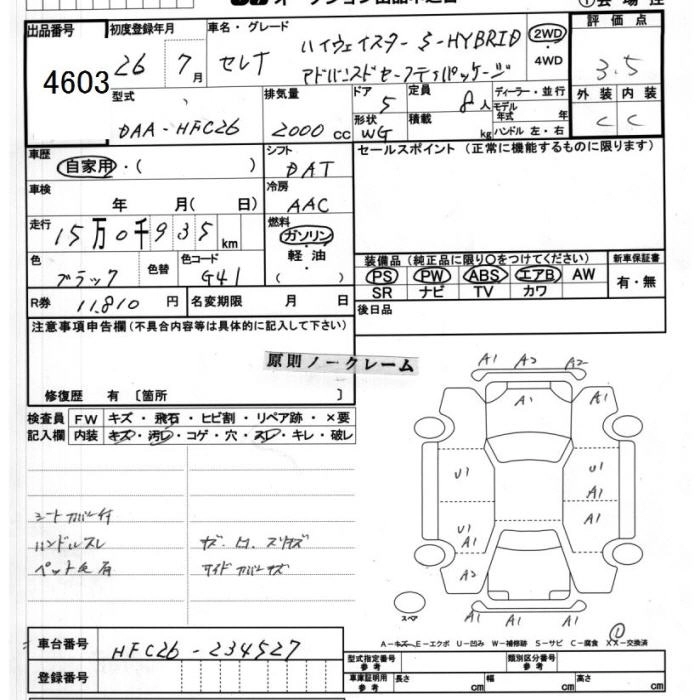 ①会場控
出品番号 4603
初度登録年月 26 7月
車名・グレード セレナ ハイウェイスター S-HYBRID
アドバンスドセーフティパッケージ
2WD・4WD
評価点 3.5
外装 内装
C C
型式 DAA-HFC26
排気量 2000cc
ドア 5
定員 8人
形状 WG
積載 kg
ディーラー・並行
モデル年式 年
ハンドル 左・右
車歴 自家用・( )
シフト DAT
セールスポイント (正常に機能するものに限ります)
車検 年 月( 日)
冷房 AAC
走行 15万0千935km
燃料 ガソリン・軽油・( )
色 ブラック 色替
色コード G41
装備品(純正品に限り○をつけてください)
新車保証書
PS PW ABS エアB AW
有・無
SR ナビ TV カワ
R券 11,810円
名変期限 月 日
後日品
注意事項申告欄(不具合内容等は具体的に記入して下さい)
原則ノークレーム
修復歴 有 〔箇所 〕
検査員記入欄
FW キズ・飛石・ヒビ割・リペア跡・×要
内装 キズ・汚レ・コゲ・穴・スレ・キレ・破レ
シートカバー付
ハンドルスレ
ペット毛有
A1 A2 A2
A1 A1
U1 U1
A1
U1 A1
A1
A2
A1 A1 A1
スペア
①
A-キズ E-エクボ U-凹み W-補修跡 S-サビ C-腐食 XX-交換済
車台番号 HFC26-234527
登録番号
型式指定番号 参考
類別区分番号 参考
車庫証明用 参考
長さ cm
幅 cm
高さ cm